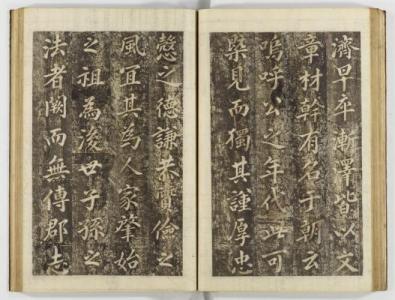 濟早卒漸澤皆以文
章材幹有名于朝云
嗚呼公之年代可
槩見而獨其謹厚忠
愨之德謙恭儉之
風宜其為人家肇始
之祖為後世子孫之
法者闕而無傳郡志